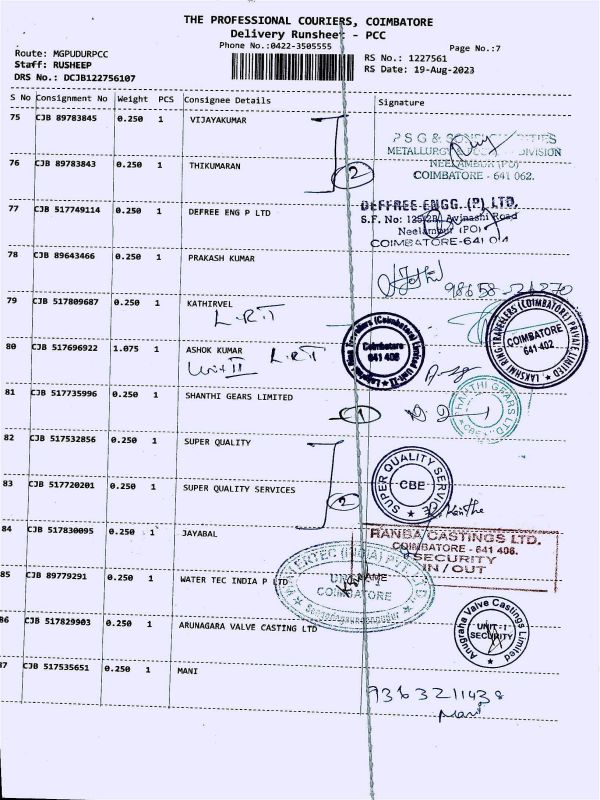 THE PROFESSIONAL COURIERS, COIMBATORE
Delivery Runsheet - PCC
Phone No.:0422-3505555
Page No.:7
Route: MGPUDURPCC
Staff: RUSHEEP
DRS No.: DCJB122756107
RS No.: 1227561
RS Date: 19-Aug-2023
S No Consignment No Weight PCS Consignee Details Signature
75 CJB 89783845 0.250 1 VIJAYAKUMAR
P S G & SONS CHARITIES
METALLURGY DIVISION
NEELAMBUR (PO)
COIMBATORE - 641 062.
76 CJB 89783843 0.250 1 THIKUMARAN
2
77 CJB 517749114 0.250 1 DEFREE ENG P LTD
DEFFREE ENGG. (P) LTD.
S.F. No: 125/2B, Avinashi Road
Neelambur (PO)
COIMBATORE-641 0
78 CJB 89643466 0.250 1 PRAKASH KUMAR
79 CJB 517809687 0.250 1 KATHIRVEL
L.R.T
LAKSHMI RING TRAVELLERS (COIMBATORE) PRIVATE LIMITED
COIMBATORE
641 402
80 CJB 517696922 1.075 1 ASHOK KUMAR
L.R.T
Unit II
Travellers (Coimbatore) Limited Unit-II
Coimbatore
641 406
81 CJB 517735996 0.250 1 SHANTHI GEARS LIMITED
1
SHANTHI GEARS LTD
82 CJB 517532856 0.250 1 SUPER QUALITY
83 CJB 517720201 0.250 1 SUPER QUALITY SERVICES
2
SUPER QUALITY SERVICES
CBE
84 CJB 517830095 0.250 1 JAYABAL
RANBA CASTINGS LTD.
COIMBATORE - 641 406.
SECURITY
IN / OUT
NAME
85 CJB 89779291 0.250 1 WATER TEC INDIA P LTD
WATERTEC (INDIA) PVT LTD
COIMBATORE
86 CJB 517829903 0.250 1 ARUNAGARA VALVE CASTING LTD
Anugraha Valve Castings Limited
UNIT - I
SECURITY
87 CJB 517535651 0.250 1 MANI
9363211438
mani